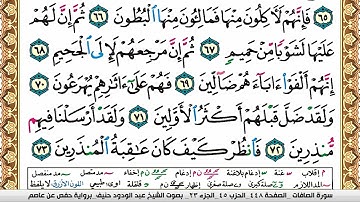 ٦٥ فَإِنَّهُمْ لَآكِلُونَ مِنْهَا فَمَالِـُٔونَ مِنْهَا ٱلْبُطُونَ ٦٦ ثُمَّ إِنَّ لَهُمْ
عَلَيْهَا لَشَوْبًا مِّنْ حَمِيمٍ ٦٧ ثُمَّ إِنَّ مَرْجِعَهُمْ لَإِلَى ٱلْجَحِيمِ ٦٨
إِنَّهُمْ أَلْفَوْا۟ ءَابَآءَهُمْ ضَآلِّينَ ٦٩ فَهُمْ عَلَىٰٓ ءَاثَـٰرِهِمْ يُهْرَعُونَ ٧٠
وَلَقَدْ ضَلَّ قَبْلَهُمْ أَكْثَرُ ٱلْأَوَّلِينَ ٧١ وَلَقَدْ أَرْسَلْنَا فِيهِم
مُّنذِرِينَ ٧٢ فَٱنظُرْ كَيْفَ كَانَ عَـٰقِبَةُ ٱلْمُنذَرِينَ ٧٣
سورة الصافات . الصفحة ٤٤٨ . حزب ٤٥ الجزء ٢٣ . بصوت الشيخ عبد الودود حنيف . برواية حفص عن عاصم